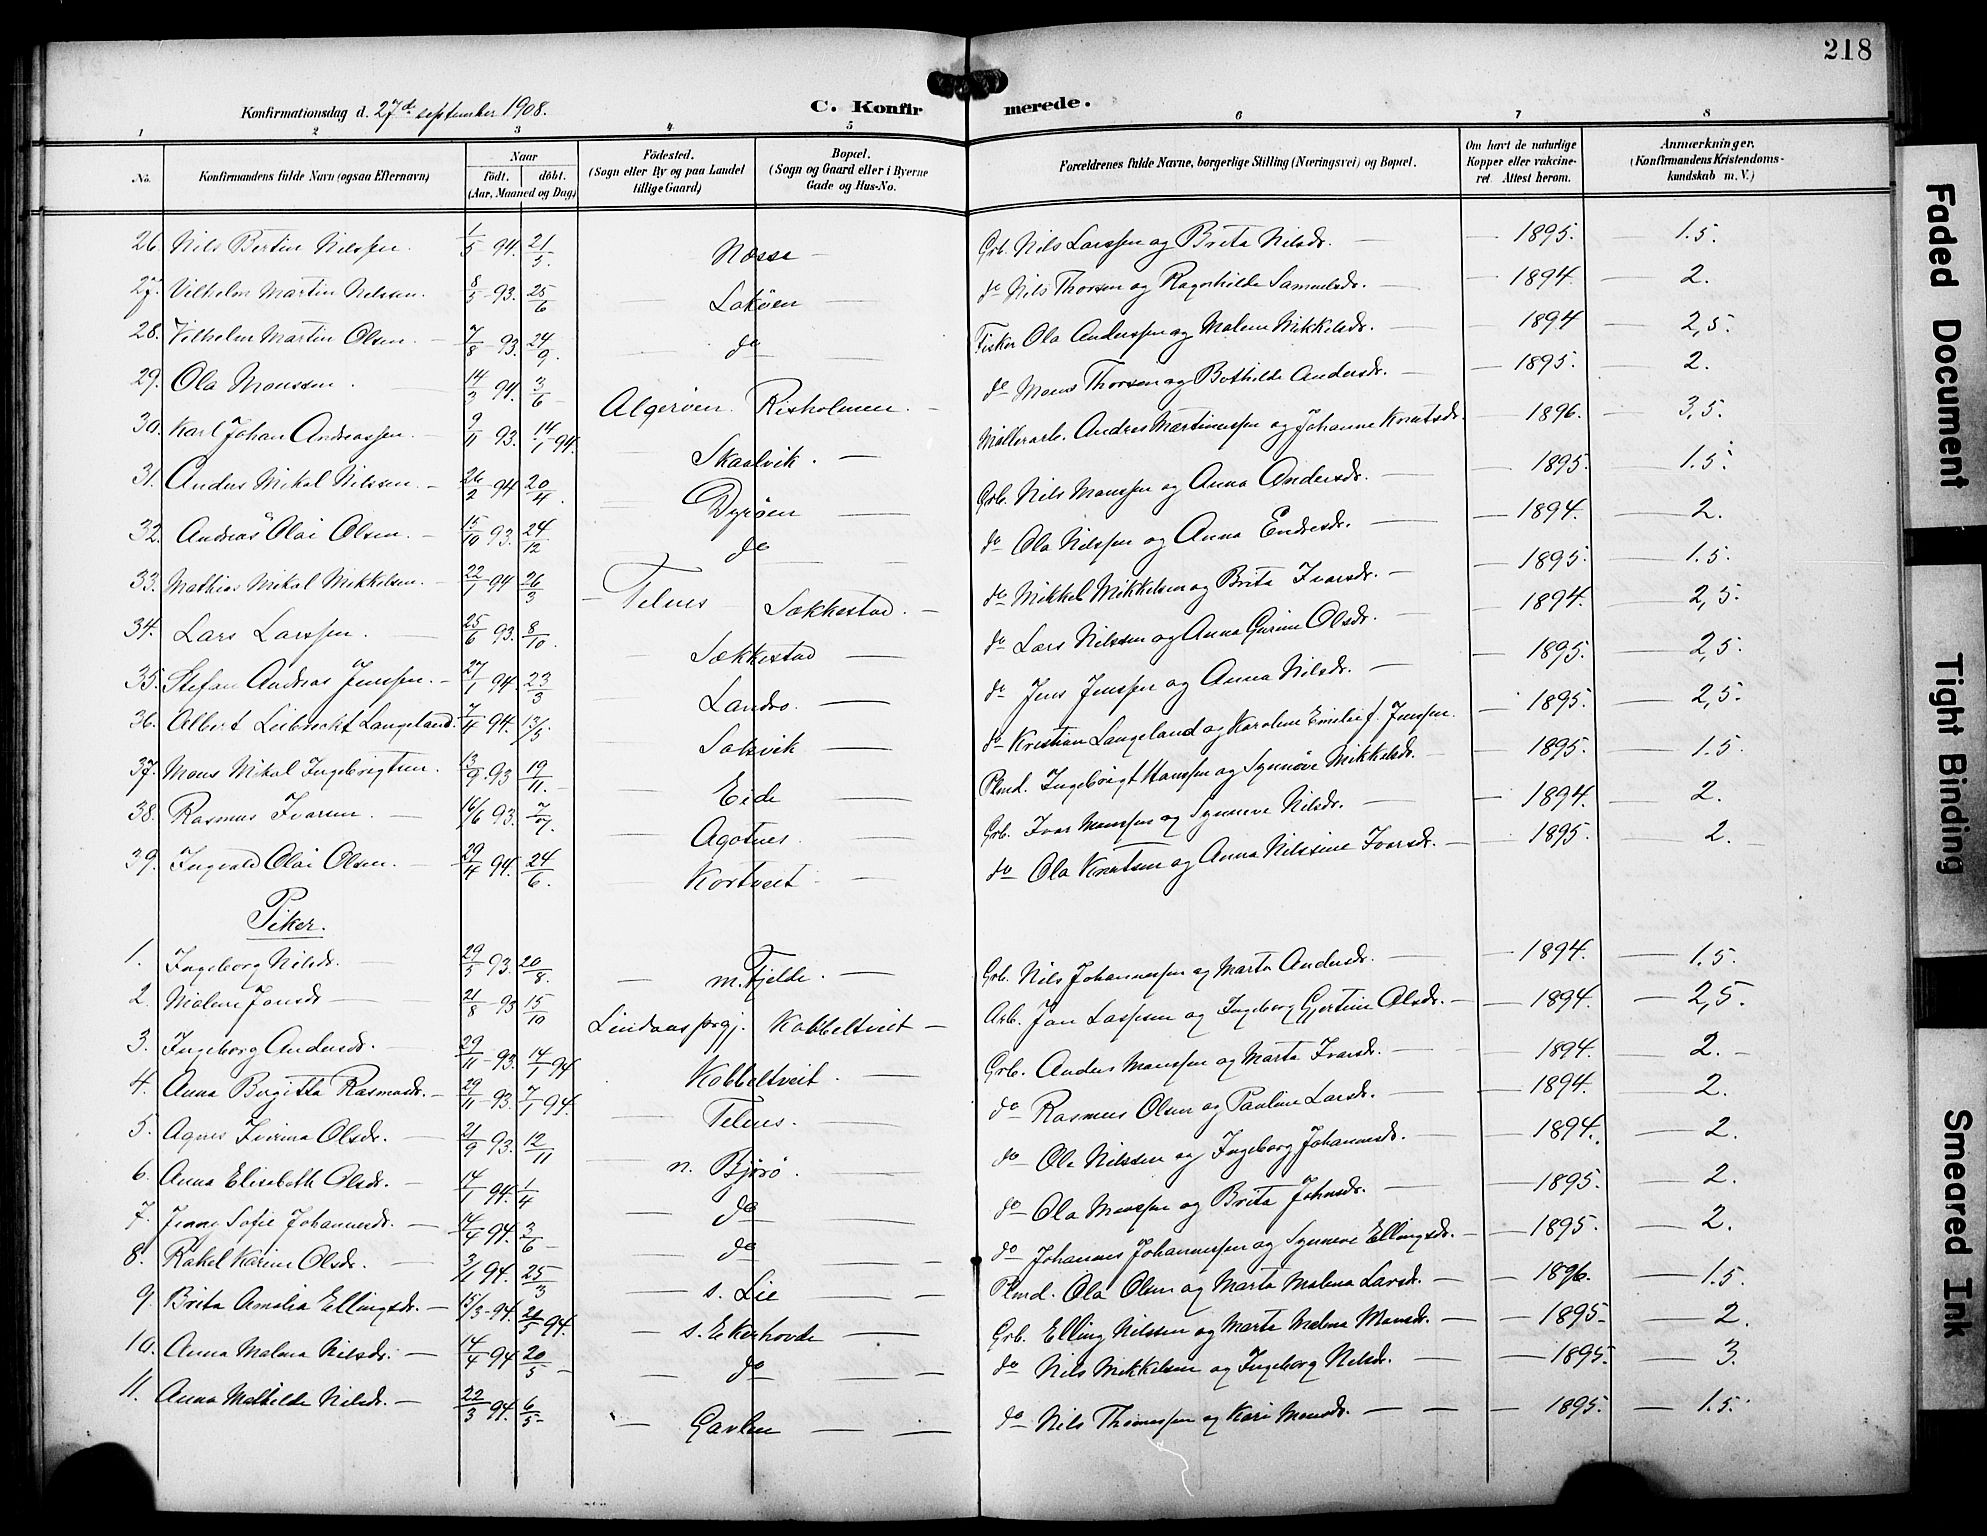 218
Konfirmationsdag d. 27de september 1908.
C. Konfirmerede.
1 2 3 4 5 6 7 8
No. Konfirmandens fulde Navn (ogsaa Efternavn) Naar födt. döbt. (Aar, Maaned og Dag) Födested. (Sogn eller By og paa Landet tillige Gaard) Bopæl. (Sogn og Gaard eller i Byerne Gade og Hus-No. Forældrenes fulde Navne, borgerlige Stilling (Næringsvei) og Bopæl. Om havt de naturlige Kopper eller vakcineret. Attest herom. Anmærkninger. (Konfirmandens Kristendomskundskab m. V.)
26. Nils Bertin Nilssen. 1/5 94. 21/5. Næsse — Grb. Nils Larssen og Brita Nilsdr. — 1895. — 1.5.
27. Vilhelm Martin Nilsen. 8/5 93. 25/6 Lokøen — do Nils Thorsen og Ragnhilde Samuelsdr. — 1894. — 2.
28. Vilhelm Martin Olsen. — 7/8 93. 24/9. do — Fisker Ola Anderssen og Malene Mikkelsdr. — 1894 — 2,5.
29. Ola Monssen. — 14/3 94. 3/6 — Algerøen. Risholmen. — do Mons Thorsen og Bothilde Andersdr. — 1895. — 2.
30. Karl Johan Andreassen. 9/11 93. 14/1 94. Skaalvik. — Møllerarb. Andreas Martinussen og Johanne Knutsdr. — 1896. — 3,5.
31. Anders Mikal Nilssen. — 26/2 94 20/4. Dyrøen — Grb. Nils Monssen og Anna Andersdr. — 1895. — 1.5.
32. Andreas Olai Olsen. — 15/10 93. 24/12 do — do Ola Nilssen og Anna Endresdr. — 1894. — 2.
33. Mathias Mikal Mikkelsen. — 22/1 94 26/3 — Telnes Sækkestad. — do Mikkel Mikkelsen og Brita Ivarsdr. — 1895. — 1.5.
34. Lars Larssen. — 25/6 93. 8/10. Sækkestad — do Lars Nilssen og Anna Gurine Olsdr. — 1894. — 2,5.
35. Stefan Andreas Jenssen. — 27/1 94. 23/3 Landro. — do Jens Jenssen og Anna Nilsdr. — 1895. — 2,5.
36. Albert Leibrockt Langeland. 7/4 94. 13/5 Solsvik — do Kristian Langeland og Karoline Emilie f. Jenssen. — 1895. — 2,5.
37. Mons Mikal Ingebrigtsen. 13/9 93 19/11. Eide — Plmd. Ingebrigt Hanssen og Synnøve Mikkelsdr. — 1895. — 1.5.
38. Rasmus Ivarsen. — 16/6 93. 7/7. Agotnes — Grb. Ivar Monssen og Synneve Nilsdr. — 1894. — 2.
39. Ingvald Olai Olsen. — 29/4 94. 24/6. Kortveit — do Ola Knutsen og Anna Nilssine Ivarsdr. — 1895. — 2.
Piker.
1. Ingeborg Nilsdr. — 29/5 93. 20/8. — m. Fjelde. — Grb. Nils Johannessen og Marta Andersdr. — 1894. — 1.5.
2. Malene Jonsdr — 21/8 93 15/10 Lindaas prgj. Kobbeltveit — Arb. Jon Lassesen og Ingeborg Gjertine Olsdr. — 1894. — 2,5.
3. Ingeborg Andersdr. — 29/11 93. 14/1 94 Kobbeltveit. — Grb. Anders Monssen og Marta Ivarsdr. — 1894. — 2.
4. Anna Birgitta Rasmusdr. — 29/11 93. 7/1 94. — Telnes. — do Rasmus Olsen og Pauline Larsdr. — 1894. — 2.
5. Agnes Iverina Olsdr. — 21/9 93. 12/11 — n. Bjørø. — do Ole Nilssen og Ingeborg Johannesdr. — 1894. — 2.
6. Anna Elisabeth Olsdr. — 14/1 94. 1/4 — do — do Ola Monssen og Brita Johnsdr. — 1895. — 2.
7. Jenny Sofie Johannesdr. — 14/4 94. 3/6 — do — do Johannes Johannessen og Synneve Ellingsdr. — 1895. — 2.
8. Rakel Karine Olsdr. — 3/1 94. 25/3 — s. Lie — Plmd. Ola Olsen og Marta Malena Larsdr. — 1896. — 1.5.
9. Brita Amalia Ellingsdr. — 15/3 94. 24/5 94. — s. Ekerhovde — Grb. Elling Nilssen og Marta Malena Monsdr. — 1895 — 2.
10. Anna Malena Nilsdr. — 14/4 94 20/5 — do — do Nils Mikkelsen og Ingeborg Nilsdr. — 1895. — 3.
11. Anna Mathilde Nilsdr. — 22/3 94. 6/5 — Gavlen — do Nils Thomessen og Kari Monsdr. — 1895. — 1.5.
Faded Document
Tight Binding
Smeared Ink